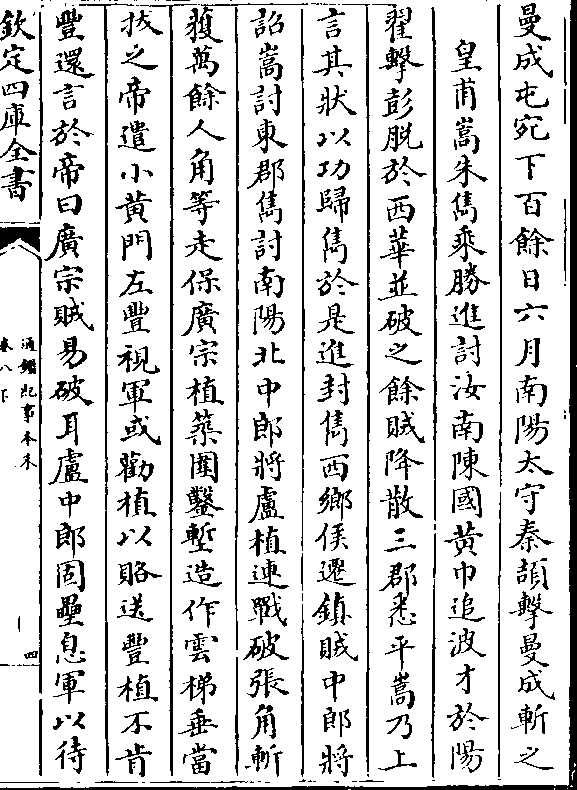 曼成屯宛下百餘日六月南陽太守秦頡擊曼成斬之
皇甫嵩朱雋乘勝進討汝南陳國黃巾追波才於陽
翟擊彭脫於西華並破之餘賊降散三郡悉平嵩乃上
言其狀以功歸雋於是進封雋西鄉侯遷鎮賊中郎將
詔嵩討東郡雋討南陽北中郎將盧植連戰破張角斬
獲萬餘人角等走保廣宗植築圍鑿塹造作雲梯垂當
拔之帝遣小黃門左豐視軍或勸植以賂送豐植不肯
豐還言於帝曰廣宗賊易破耳盧中郎固壘息軍以待
欽定四庫全書
通鑑紀事本末
卷八下
四